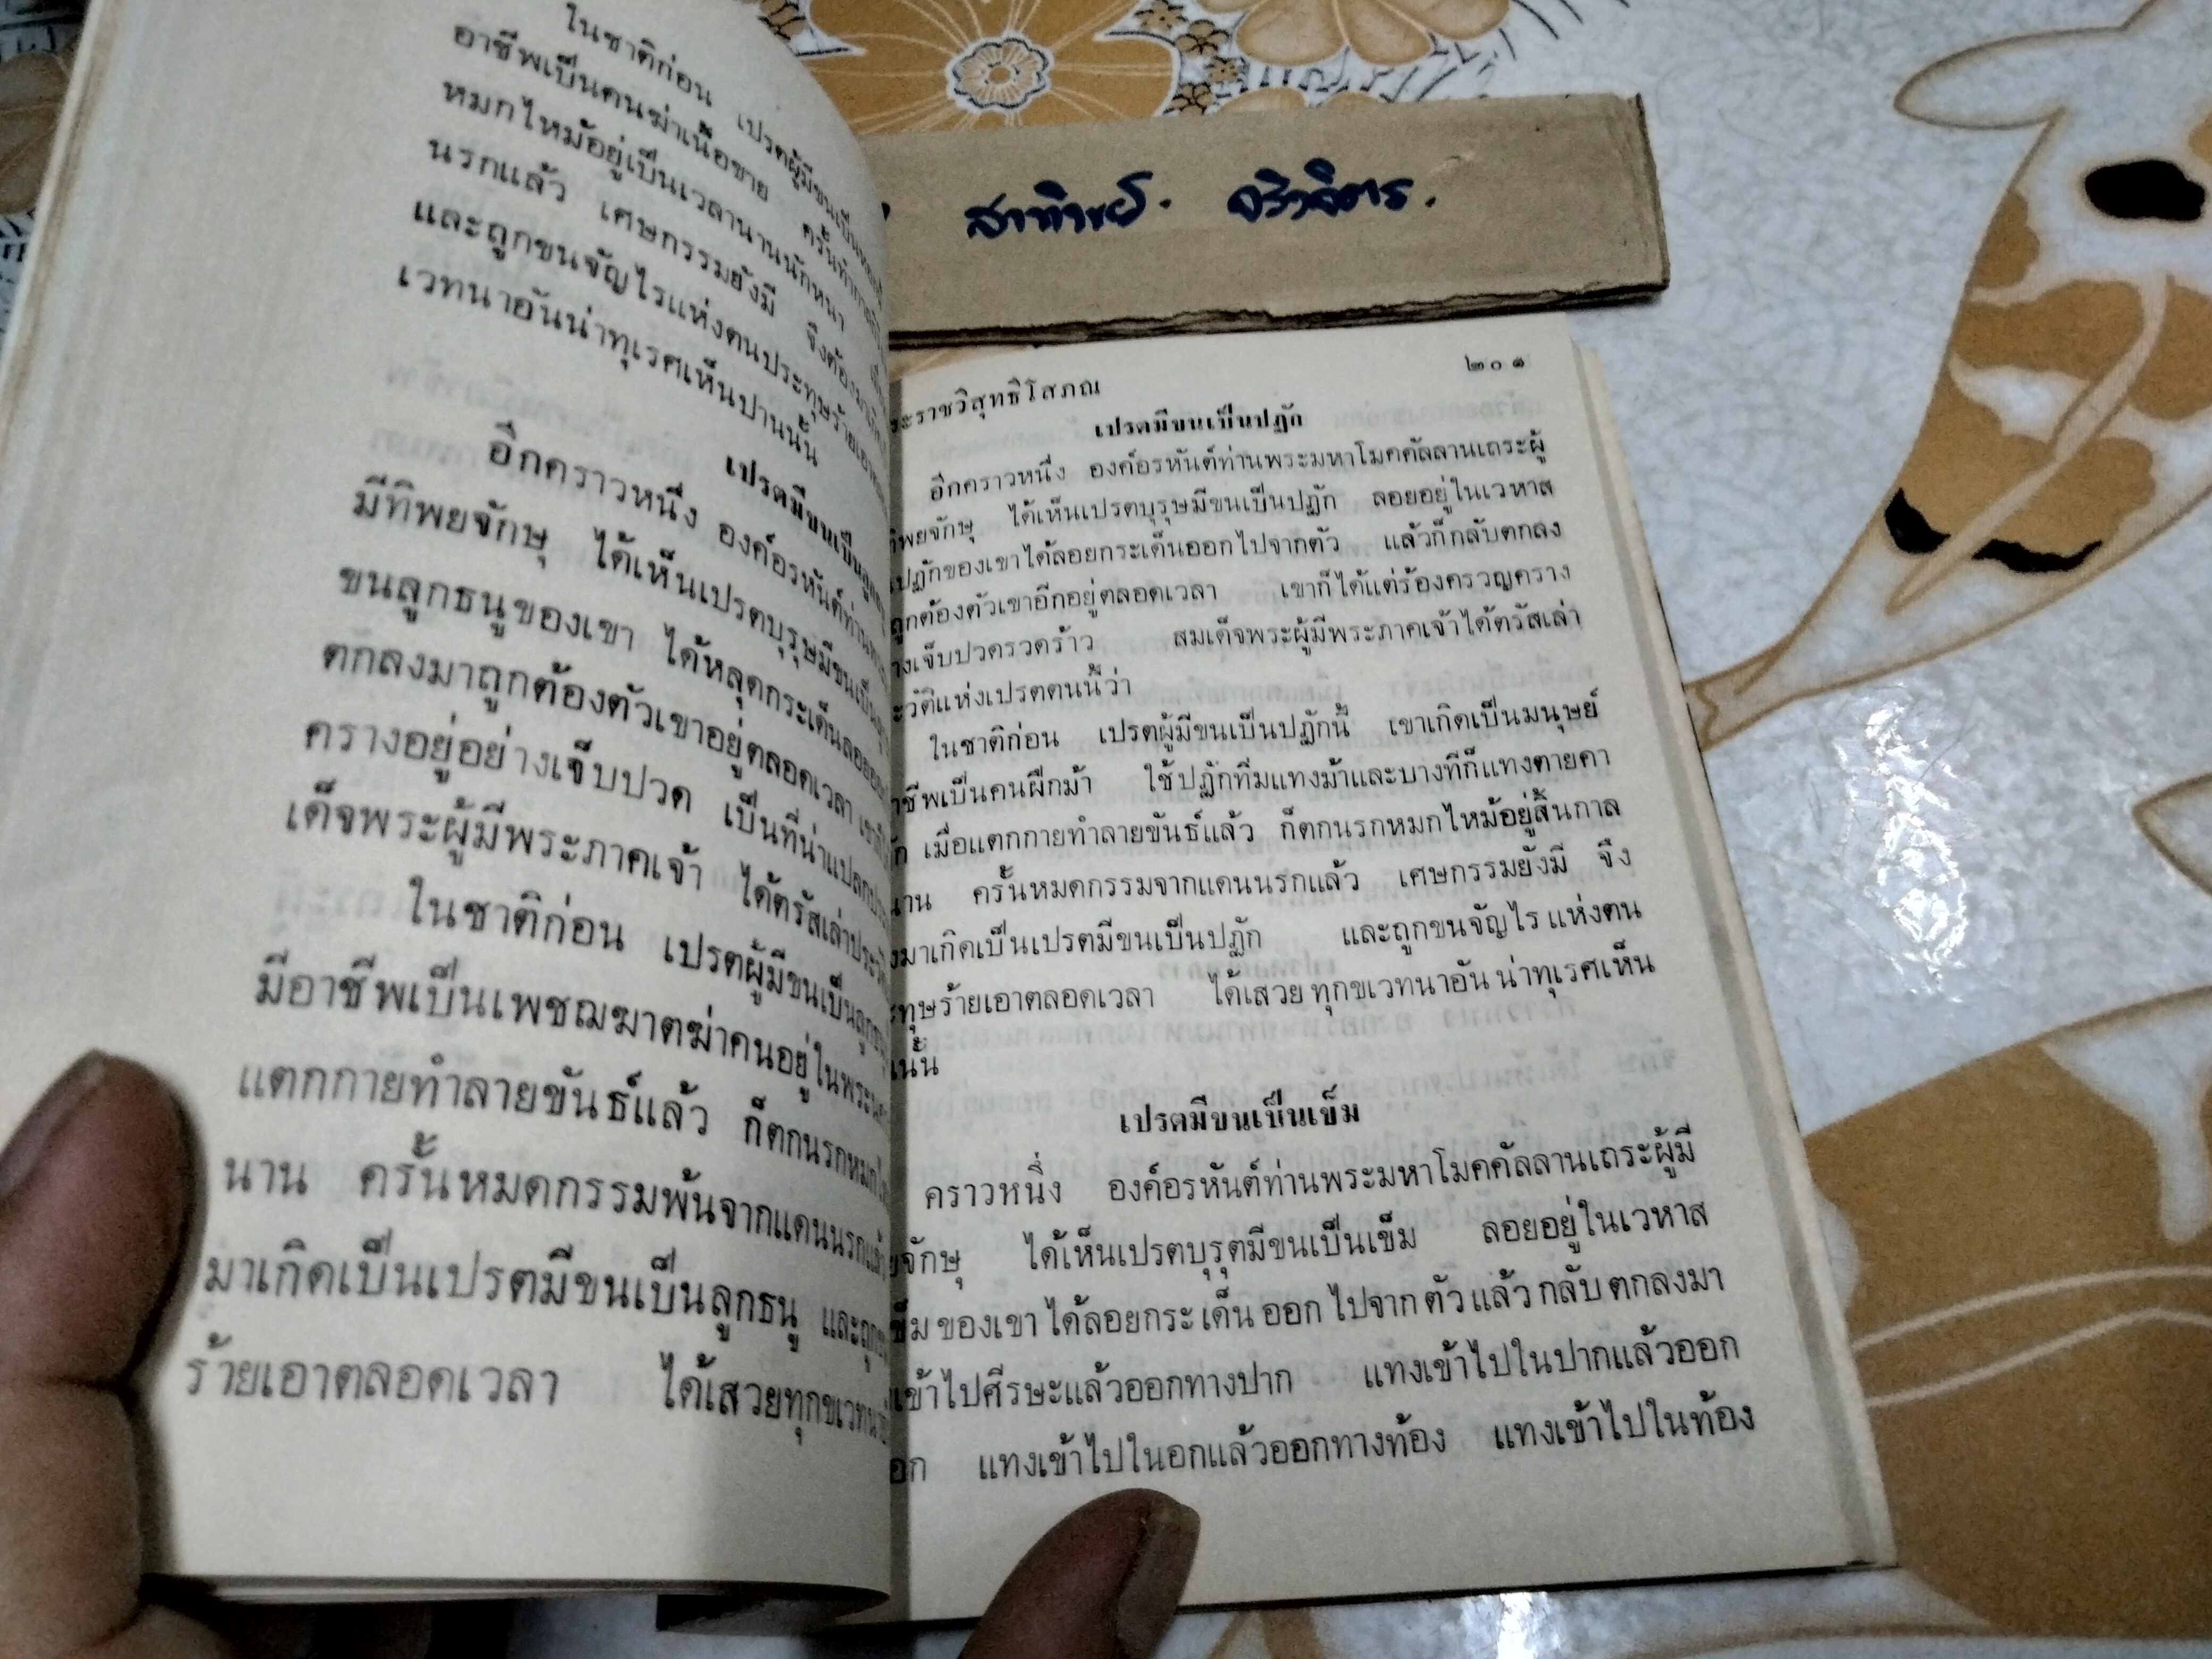 ในชาติก่อน เปรตผู้มีขนเป็น
อาชีพเป็นคนฆ่าเนื้อขาย ครั้นทำ
หมกไหม้อยู่เป็นเวลานานนักหนา
นรกแล้ว เศษกรรมยังมี จึงต้องมา
และถูกขนจัญไรแห่งตนประทุษร้ายเอา
เวทนาอันน่าทุเรศเห็นปานนั้น
เปรตมีขนเป็น
อีกคราวหนึ่ง องค์อรหันต์ท่าน
มีทิพยจักษุ ได้เห็นเปรตบุรุษมีขนเป็น
ขนลูกธนูของเขา ได้หลุดกระเด็นลอย
ตกลงมาถูกต้องตัวเขาอยู่ตลอดเวลา
ครางอยู่อย่างเจ็บปวด เป็นที่น่าแปลก
เด็จพระผู้มีพระภาคเจ้า ได้ตรัสเล่า
ในชาติก่อน เปรตผู้มีขนเป็น
มีอาชีพเป็นเพชฌฆาตฆ่าคนอยู่ใน
แตกกายทำลายขันธ์แล้ว ก็ตกนรก
นาน ครั้นหมดกรรมพ้นจากแดนนรก
มาเกิดเป็นเปรตมีขนเป็นลูกธนู และ
ร้ายเอาตลอดเวลา ได้เสวยทุกข
สาทิพย์. จริวจิตร.
ะราชวิสุทธิโสภณ ๒๐๑
เปรตมีขนเป็นปฏัก
อีกคราวหนึ่ง องค์อรหันต์ท่านพระมหาโมคคัลลานเถระผู้
ทิพยจักษุ ได้เห็นเปรตบุรุษมีขนเป็นปฏัก ลอยอยู่ในเวหาส
ปฏักของเขาได้ลอยกระเด็นออกไปจากตัว แล้วก็กลับตกลง
ถูกต้องตัวเขาอีกอยู่ตลอดเวลา เขาก็ได้แต่ร้องครวญคราง
างเจ็บปวดรวดร้าว สมเด็จพระผู้มีพระภาคเจ้าได้ตรัสเล่า
ะวัติแห่งเปรตตนนี้ว่า
ในชาติก่อน เปรตผู้มีขนเป็นปฏักนี้ เขาเกิดเป็นมนุษย์
าชีพเป็นคนฝึกม้า ใช้ปฏักทิ่มแทงม้าและบางทีก็แทงตายคา
ัก เมื่อแตกกายทำลายขันธ์แล้ว ก็ตกนรกหมกไหม้อยู่สิ้นกาล
นาน ครั้นหมดกรรมจากแดนนรกแล้ว เศษกรรมยังมี จึง
งมาเกิดเป็นเปรตมีขนเป็นปฏัก และถูกขนจัญไรแห่งตน
ะทุษร้ายเอาตลอดเวลา ได้เสวยทุกขเวทนาอันน่าทุเรศเห็น
นนั้น
เปรตมีขนเป็นเข็ม
คราวหนึ่ง องค์อรหันต์ท่านพระมหาโมคคัลลานเถระผู้มี
ยจักษุ ได้เห็นเปรตบุรุตมีขนเป็นเข็ม ลอยอยู่ในเวหาส
ข็มของเขาได้ลอยกระเด็นออกไปจากตัวแล้วกลับตกลงมา
เข้าไปศีรษะแล้วออกทางปาก แทงเข้าไปในปากแล้วออก
อก แทงเข้าไปในอกแล้วออกทางท้อง แทงเข้าไปในท้อง